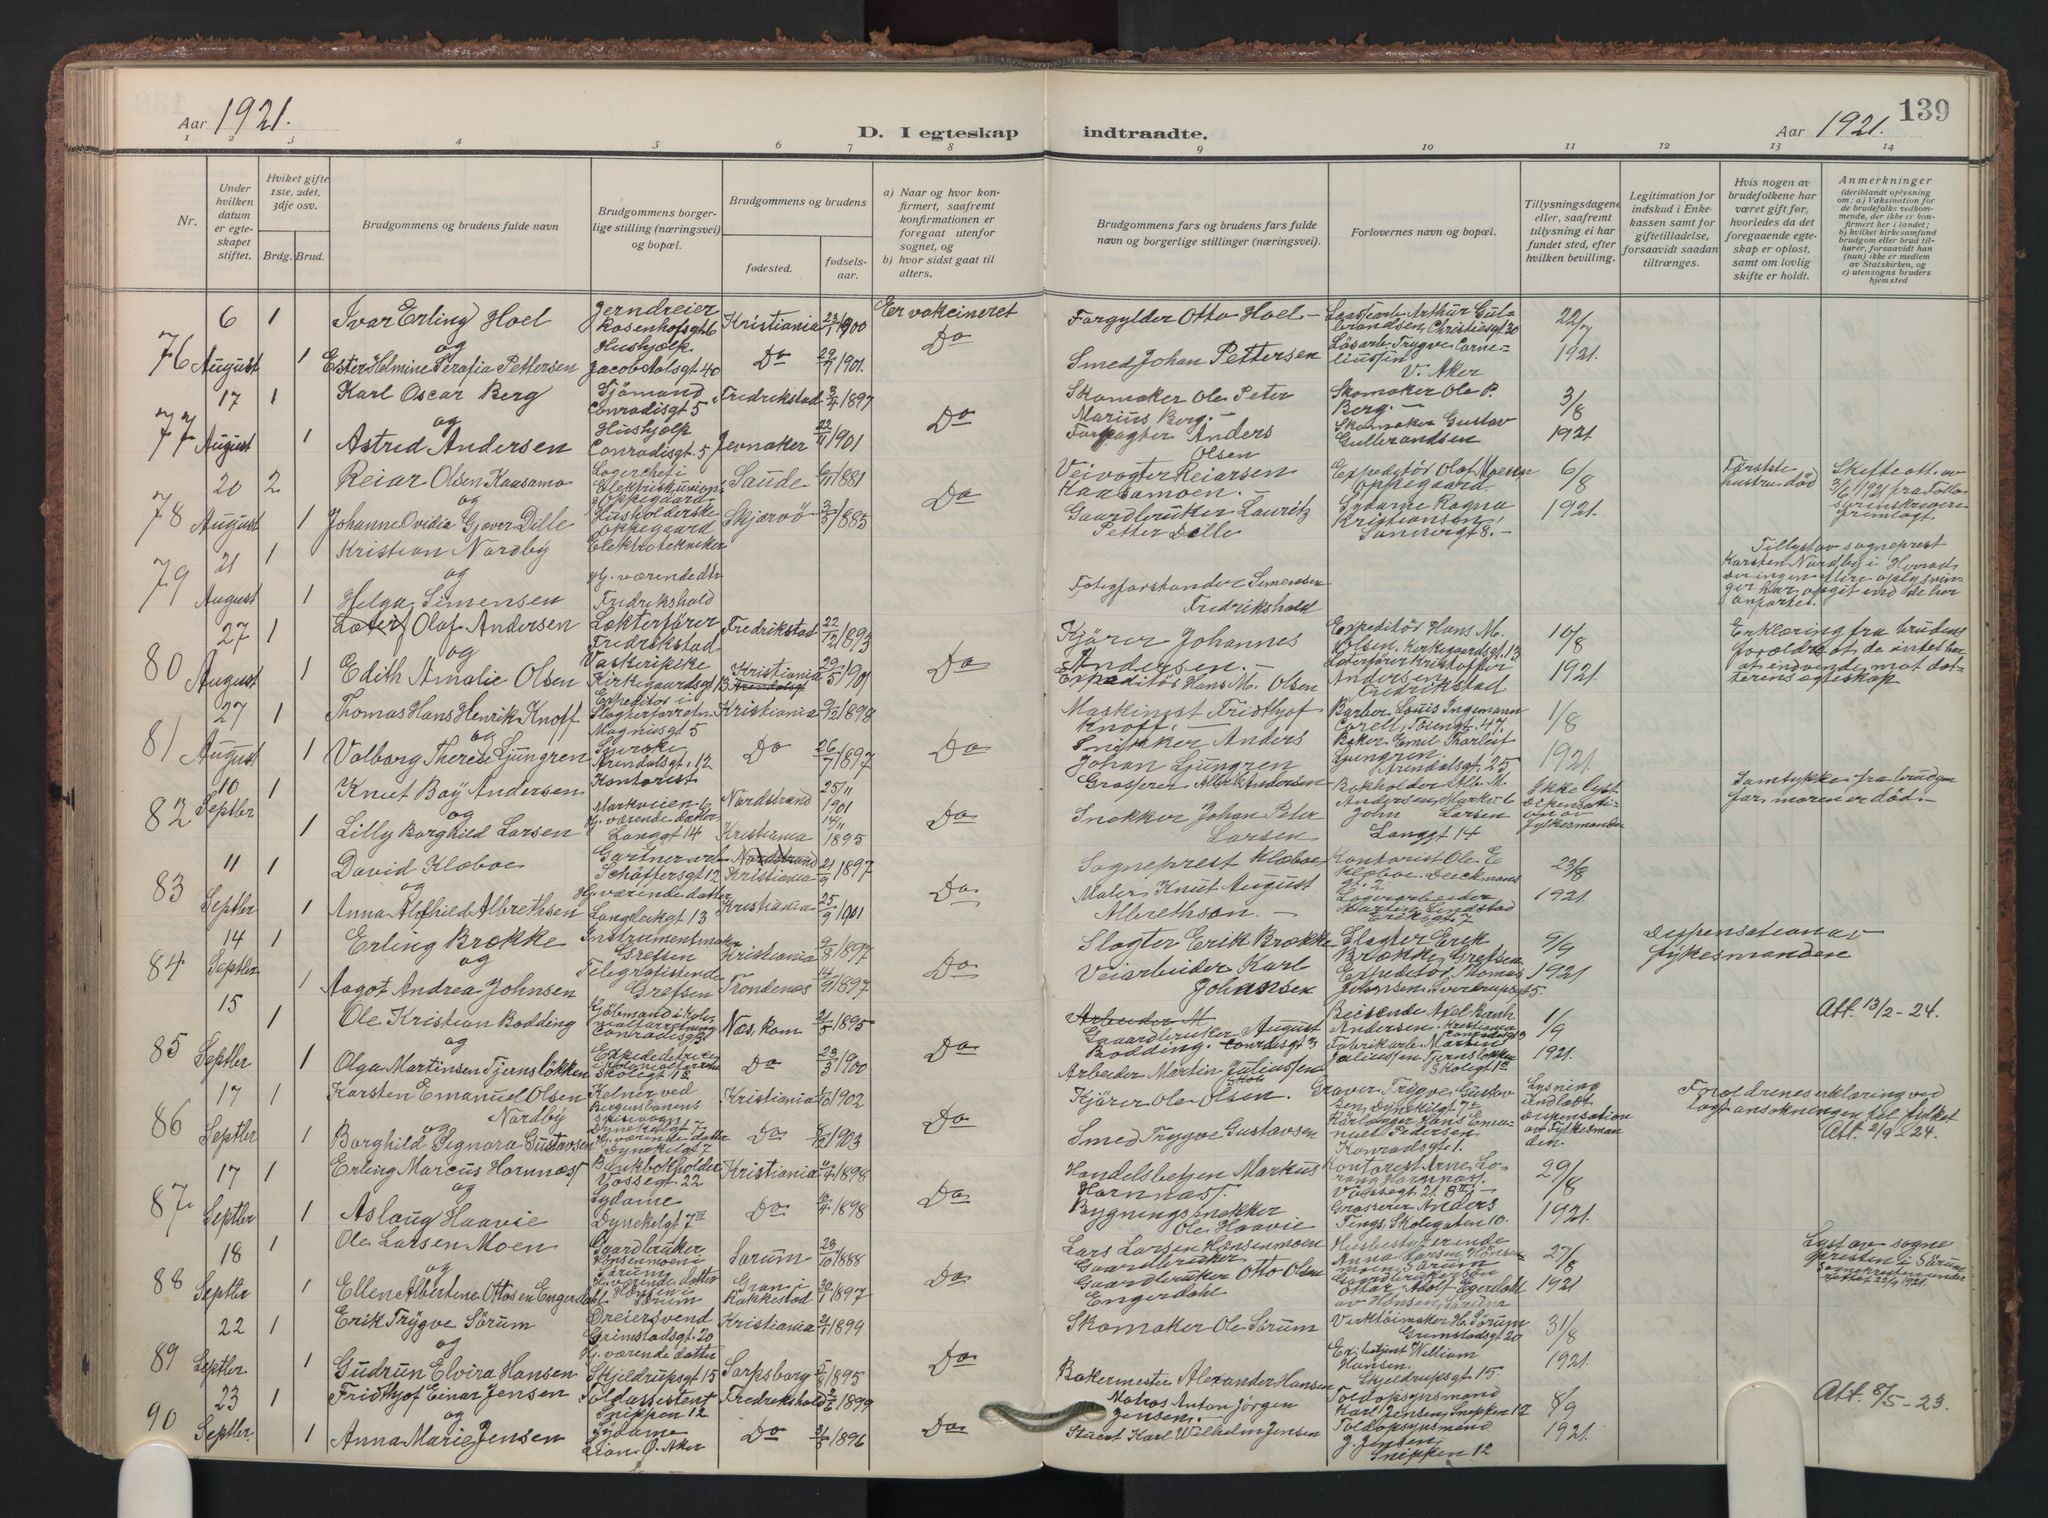 Aar 1921.
D. I egteskap indtraadte.
Aar 1921.
139
1 2 3 4 5 6 7 8 9 10 11 12 13 14
Nr.
Under hvilken datum er egteskapet stiftet.
Hviket gifte 1ste, 2det, 3dje osv.
Brdg. Brud.
Brudgommens og brudens fulde navn
Brudgommens borgerlige stilling (næringsvei) og bopæl.
Brudgommens og brudens
fødested.
fødselsaar.
a) Naar og hvor konfirmert, saafremt konfirmationen er foregaat utenfor sognet, og
b) hvor sidst gaat til alters.
Brudgommens fars og brudens fars fulde navn og borgerlige stillinger (næringsvei).
Forlovernes navn og bopæl.
Tillysningsdagene eller, saafremt tillysning ei har fundet sted, efter hvilken bevilling.
Legitimation for indskud i Enkekassen samt for giftetilladelse, forsaavidt saadan tiltrænges.
Hvis nogen av brudefolkene har været gift før, hvorledes da det foregaaende egteskap er opløst, samt om lovlig skifte er holdt.
Anmerkninger
(deriblandt oplysning om: a) Vaksination for de brudefolks vedkommende, der ikke er konfirmert her i landet; b) hvilket kirkesamfund brudgom eller brud tilhører, forsaavidt han (hun) ikke er medlem av Statskirken, og c) utensogns bruders hjemsted
76 6 August 1 Ivar Erling Hoel Jerndreier Rosenhofsgt 6 Kristiania 23/1 1900 Er vakcineret Forgylder Otto Hoel - Arthur Gulbrandsen, Christiesgt 20 22/7 1921.
og
1 Ester Helmine Serafia Pettersen Hushjælp Jacob Aalsgt 40 Do 29/7 1901. Do Smed Johan Pettersen Løsarb. Trygve Corneliussen V. Aker
77 17 August 1 Karl Oscar Berg Sjömand Conradisgt 5 Fredrikstad 3/4 1897 Do Skomaker Ole Peter Marius Berg. - Skomaker Ole P. Berg. - 3/8 1921
og
1 Astrid Andersen Hushjelp Conradisgt. 5 Jevnaker 22/11 1901 Forpagter Anders Olsen Skomaker Gustav Gulbrandsen
78 20 August 2 Reiar Olsen Kaasamo Lagerchef i Elektriskunion Oppegaard Saude 1881 Do Veivogter Reiarsen Kaasamoen. - Expeditör Olaf Moesen Oppegaard 6/8 1921. Første hustru död Skifteatt. av 3/6 1921 fra Follo sorenskriveri fremlagt
og
1 Johanne Ovidia Gjøver Dille Husholderske Oppegaard Skjervö 1885 Gaardbruker Lauritz Petter Dille Sydame Ragna Kristiansen, Sannergt 8. -
79 21 August 1 Kristian Nordby Elektrotekniker Tillyst av sogneprest Karsten Nordby i
og
1 Helga Simensen hj. værende dtr Fredrikshald Simensen Fredrikshald
80 27 August 1 Olaf Andersen Løkterfører Fredrikstad Fredrikstad 22/12 1893 Do Kjörer Johannes Andersen. - Expeditör Hans M. Olsen, Kirkegaardsgt. 13 10/8 1921. Erklæring fra brudens forældre at de intet har at indvende mot datterens egteskap
og
1 Edith Amalie Olsen Vaskeripike Kirkegaardsgt 13 Kristiania 29/5 1901 Expeditör Hans M. Olsen Kristoffer Andersen Fredrikstad
81 27 August 1 Thomas Hans Henrik Knoff Expeditör i Slagterforretn. Magnusgt 5 Kristiania 9/12 1898 Do Maskinist Fridthjof Knoff. Barber Louis Ingemann Corell, Töiengt. 47. 1/8 1921.
og
1 Valborg Therese Ljungren Syerske Arendalsgt. 12 Do 26/7 1897 Snekker Anders Johan Ljungren Baker Emil Thorleif Ljungren Arendalsgt 25
82 10 Septbr 1 Knut Boy Andersen Kontorist Markveien 6 Nordstrand 25/11 1901 Do Grosserer Andersen Bokholder Alb. M. Andersen, Markv. 6 Ikke lyst dispensation av fylkesmanden Samtykke fra brudgom far, moren er död. -
og
1 Lilly Borghild Larsen hj. værende datter Langgt 14 Kristiania 14/11 1895 Snekker Johan Peter Larsen John Larsen Langgt 14
83 11 Septbr 1 David Klæboe Gartnerarb. Schöftersgt 12 Kristiania 21/9 1897 Do Sogneprest Klæboe Kontorist Ole E Klæboe. Deichmansgt. 2 23/8 1921.
og
1 Anna Alfhild Albrethsen hj. værende datter Langleikgt 13 Kristiania 25/9 1901 Maler Knut August Albrethson. - Lagerarbeider Marten Lindstad Eriksgt 7
84 14 Septbr 1 Erling Brække Instrumentmaker Grefsen Kristiania 9/8 1897 Do Slagter Erik Brække Slagter Erik Brække, Grefsen 9/9 1921 Dispensation av fylkesmanden
og
1 Aagot Andrea Johnsen Telegrafistinde Grefsen Trondenes 14/11 1897 Veiarbeider Karl Johansen Expeditör Thomas Johansen
85 15 Septbr 1 Ole Kristian Bodding Conradisgt 3 Næs, Rom. 21/5 1895 Do Gaardbruker August Bodding. Conradisgt 3 Reisende Axel Andersen. Kristiania 1/9 1921. Att. 13/2-24.
og
1 Olga Martinsen Tjernsløkken Skolegt 1a Do 23/3 1900 Arbeider Martin Juliussen Fabrikarb. Martin Juliussen Tjernsløkken Skolegt 1a
86 17 Septbr 1 Karsten Emanuel Olsen Nordby Kelner ved Bergensbanens Dynekilgt 7 Kristiania 1902 Do Kjörer Ole Olsen. Graver Trygve Gustavsen, Dynekilgt 7 Lysning undlatt dispensation av Fylkesmanden. Foreldrenes erklæring vedlagt ansökningen til fylket Att. 2/9-24.
og
1 Borghild Signora Gustavsen hj. værende datter Dynekilgt 7 Do 1903 Smed Trygve Gustavsen Hans Emanuel Pedersen Konradsgt 1.
87 17 Septbr 1 Erling Marcus Hornnæs Bankbokholder Vossegt 22 Kristiania 1898 Do Handelsbetjen Markus Hornnæs. Kontorist Arne Hornnæs. Vossegt 21. 29/8 1921.
og
1 Aslaug Haavie Sydame Dynekilgt 7 III Do 6/4 1898 Bygningssnekker Ole Haavie Grosserer Anders Tings, Skolegaten 10.
88 18 Septbr 1 Ole Larsen Moen Gaardbruker Hønsenmoen i Sörum Sorum 23/10 1888 Do Lars Larsen Hönsenmoen Gaardbruker Husbestyrerinde Anna Larsen Hönsenmoen, Sörum 27/8 1921 Lyst av sognepresten i Sörum
og
1 Ellen Albertine Ottosen Engerdahl hj. værende datter Hönsen i Sörum Gran i Rakkestad 30/1 1897 Gaardbruker Otto Olsen Engerdahl Gaardbrukersön Ottar Adolf Egerdahl av Hönsen, Sörum
89 22 Septbr 1 Erik Trygve Sörum Dreiersvend Grimstadsgt. 20 Kristiania 1899 Do Skomaker Ole Sörum Verktöimaker H. Sörum Grimstadsgt 20 31/8 1921.
og
1 Gudrun Elvira Hansen hj. værende datter Skjeldrupsgt 15 Sarpsborg 1895 Bakermester Alexander Hansen William Hansen. Skjeldrupsgt 15.
90 23 Septbr. 1 Fridthjof Einar Jensen Toldassistent Snippen 12 Fredrikshald 2/6 1899 Do Matros Anton Jörgen Jensen. - Toldopsynsmand Karl Jensen, Snippen 12 8/9 1921. Att. 8/5-23.
og
1 Anna Marie Jensen Sydame Lian Ö. Aker Do 1896 Karl Wilhelm Jensen Toldopsynsmand J. Jensen, Snippen 12